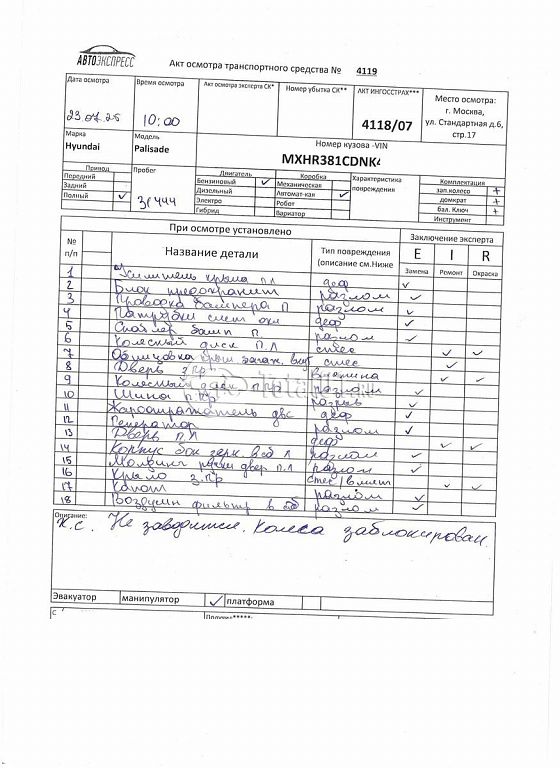 АВТОЭКСПРЕСС
Акт осмотра транспортного средства № 4119
Дата осмотра
Время осмотра
Акт осмотра эксперта СК*
Номер убытка СК**
АКТ ИНГОССТРАХ***
Место осмотра:
г. Москва,
ул. Стандартная д.6,
стр.17
23.07.25
10:00
4118/07
Марка
Модель
Номер кузова -VIN
Hyundai
Palisade
MXHR381CDNK
Привод
Пробег
Двигатель
Коробка
Характеристика
повреждения
Комплектация
Передний
Бензиновый ✓
Механическая
зап.колесо +
Задний
Дизельный
Автомат-кая ✓
домкрат +
Полный ✓
Электро
Робот
бал. Ключ +
Гибрид
Вариатор
Инструмент
При осмотре установлено
Заключение эксперта
№
п/п
Название детали
Тип повреждения
(описание см.Ниже
E I R
Замена Ремонт Окраска
1 Усилитель крыла п.л деф ✓
2 Блок предохранит разлом ✓
3 Проводка бампера П разлом ✓
4 Патрубки сист охл деф ✓
5 Спойлер бамп п. разлом ✓
6 Колесный диск п.л стес
7 Облицовка крыш багаж. стес ✓ ✓
8 Дверь з.пр. Вмятина ✓
9 Колесный диск п.пр разлом ✓ ✓
10 Шина п.пр разрыв ✓
11 Жароотражатель двс деф ✓
12 Генератор разлом ✓
13 Дверь п.л деф
14 Корпус бок зерк. л разлом ✓ ✓
15 Молдинг двер п.л разлом ✓
16 Крыло з.пр стес/вмят ✓
17 Капот разлом ✓ ✓
18 Воздушн фильтр в сб разлом ✓
Описание:
к.с. Не заводится. Колеса заблокирован
Эвакуатор манипулятор ✓ платформа
С